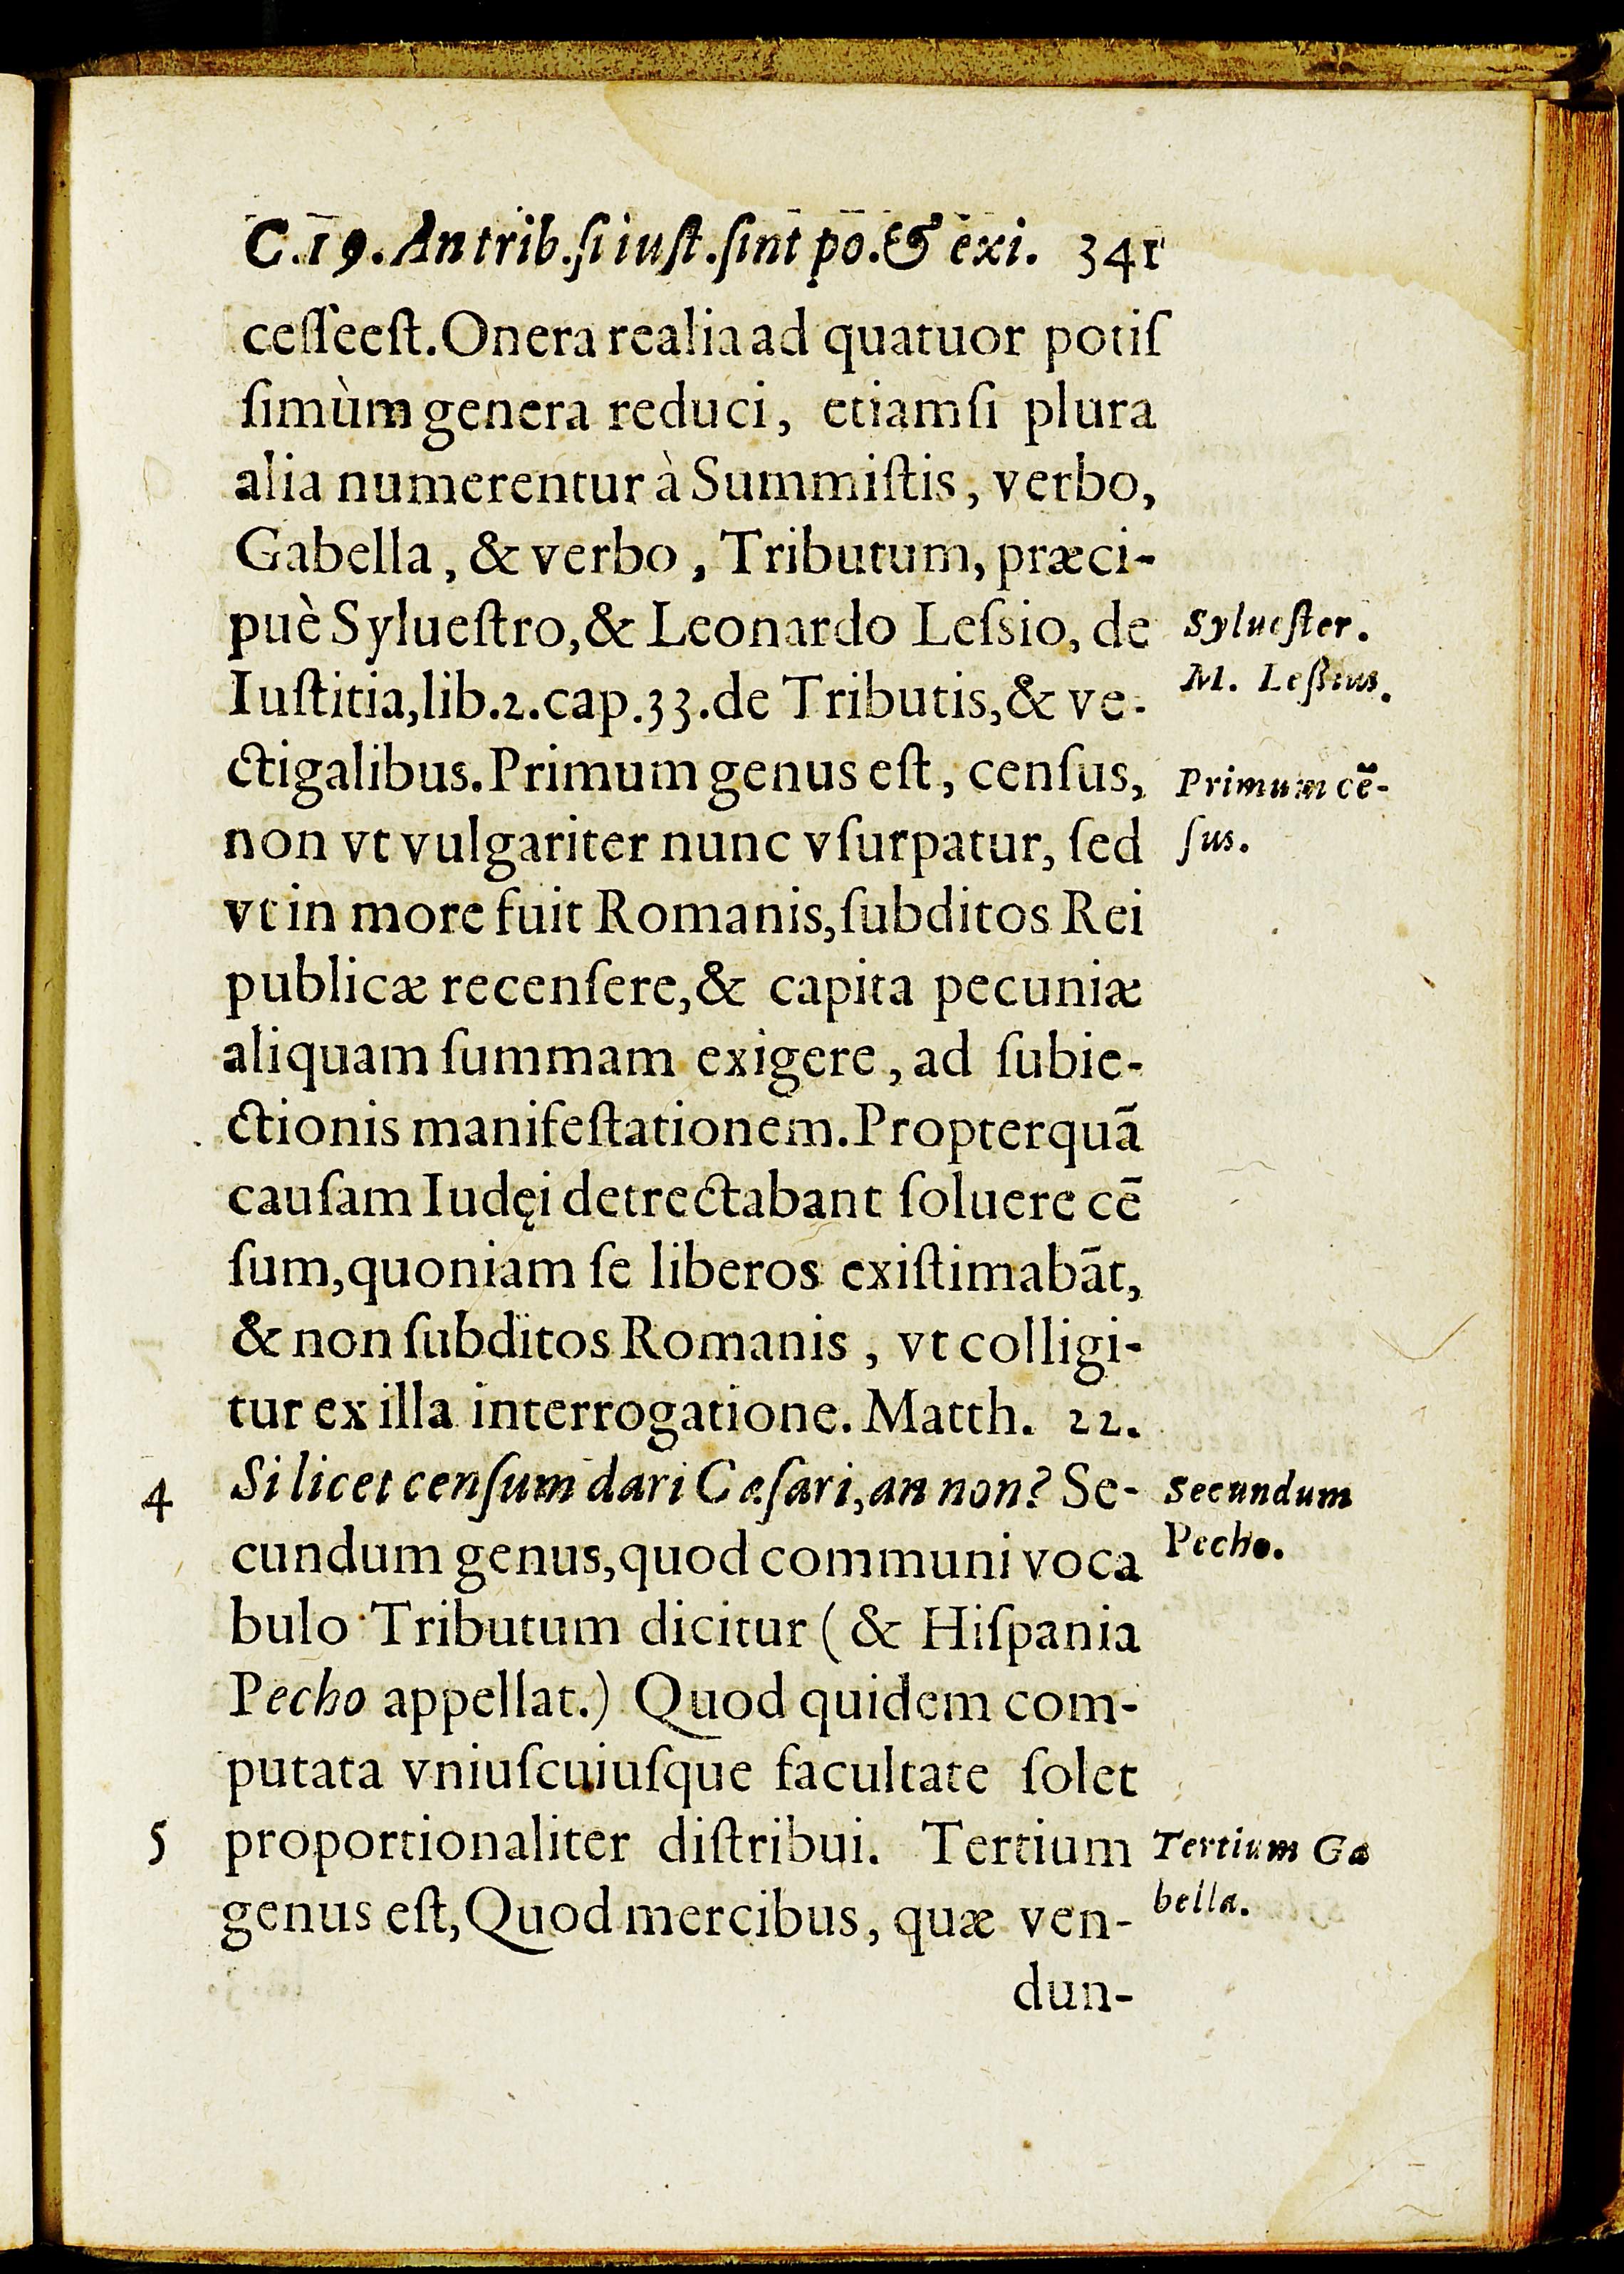 C.19. An trib. ſi iuſt. ſint po. & exi. 341
ceſſe eſt. Onera realia ad quatuor potiſ
ſimùm genera reduci, etiamſi plura
alia numerentur à Summiſtis, verbo,
Gabella, & verbo, Tributum, præci-
puè Sylueſtro, & Leonardo Leſsio, de
Iuſtitia, lib. 2. cap. 33. de Tributis, & ve-
ctigalibus. Primum genus eſt, cenſus,
non vt vulgariter nunc vſurpatur, ſed
vt in more fuit Romanis, ſubditos Rei
publicæ recenſere, & capita pecuniæ
aliquam ſummam exigere, ad ſubie-
ctionis manifeſtationem. Propterquã
cauſam Iudęi detrectabant ſoluere cẽ
ſum, quoniam ſe liberos exiſtimabãt,
& non ſubditos Romanis, vt colligi-
tur ex illa interrogatione. Matth. 22.
Si licet cenſum dari Cæſari, an non? Se-
cundum genus, quod communi voca
bulo Tributum dicitur (& Hiſpania
Pecho appellat.) Quod quidem com-
putata vniuſcuiuſque facultate ſolet
proportionaliter diſtribui. Tertium
genus eſt, Quod mercibus, quæ ven-
dun-
Sylueſter.
M. Leßius.
Primum cẽ-
ſus.
4
Secundum
Pecho.
5
Tertium Ga
bella.